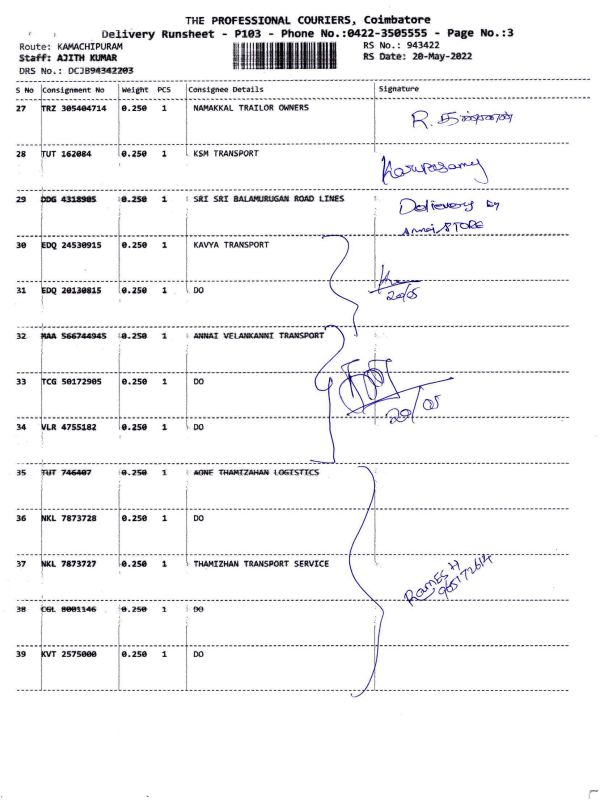 THE PROFESSIONAL COURIERS, Coimbatore
Delivery Runsheet - P103 - Phone No.:0422-3505555 - Page No.:3
Route: KAMACHIPURAM RS No.: 943422
Staff: AJITH KUMAR RS Date: 20-May-2022
DRS No.: DCJB94342203
S No Consignment No Weight PCS Consignee Details Signature
27 TRZ 305404714 0.250 1 NAMAKKAL TRAILOR OWNERS
28 TUT 162084 0.250 1 KSM TRANSPORT Karupasamy
29 DDG 4318905 0.250 1 SRI SRI BALAMURUGAN ROAD LINES Delievery by
Annai STORE
30 EDQ 24530915 0.250 1 KAVYA TRANSPORT
31 EDQ 20130815 0.250 1 DO 20/05
32 MAA 566744945 0.250 1 ANNAI VELANKANNI TRANSPORT
33 TCG 50172905 0.250 1 DO
20/05
34 VLR 4755182 0.250 1 DO
35 TUT 746407 0.250 1 AONE THAMIZAHAN LOGISTICS
36 NKL 7873728 0.250 1 DO
37 NKL 7873727 0.250 1 THAMIZHAN TRANSPORT SERVICE RamESH
38 CGL 8001146 0.250 1 DO
39 KVT 2575000 0.250 1 DO